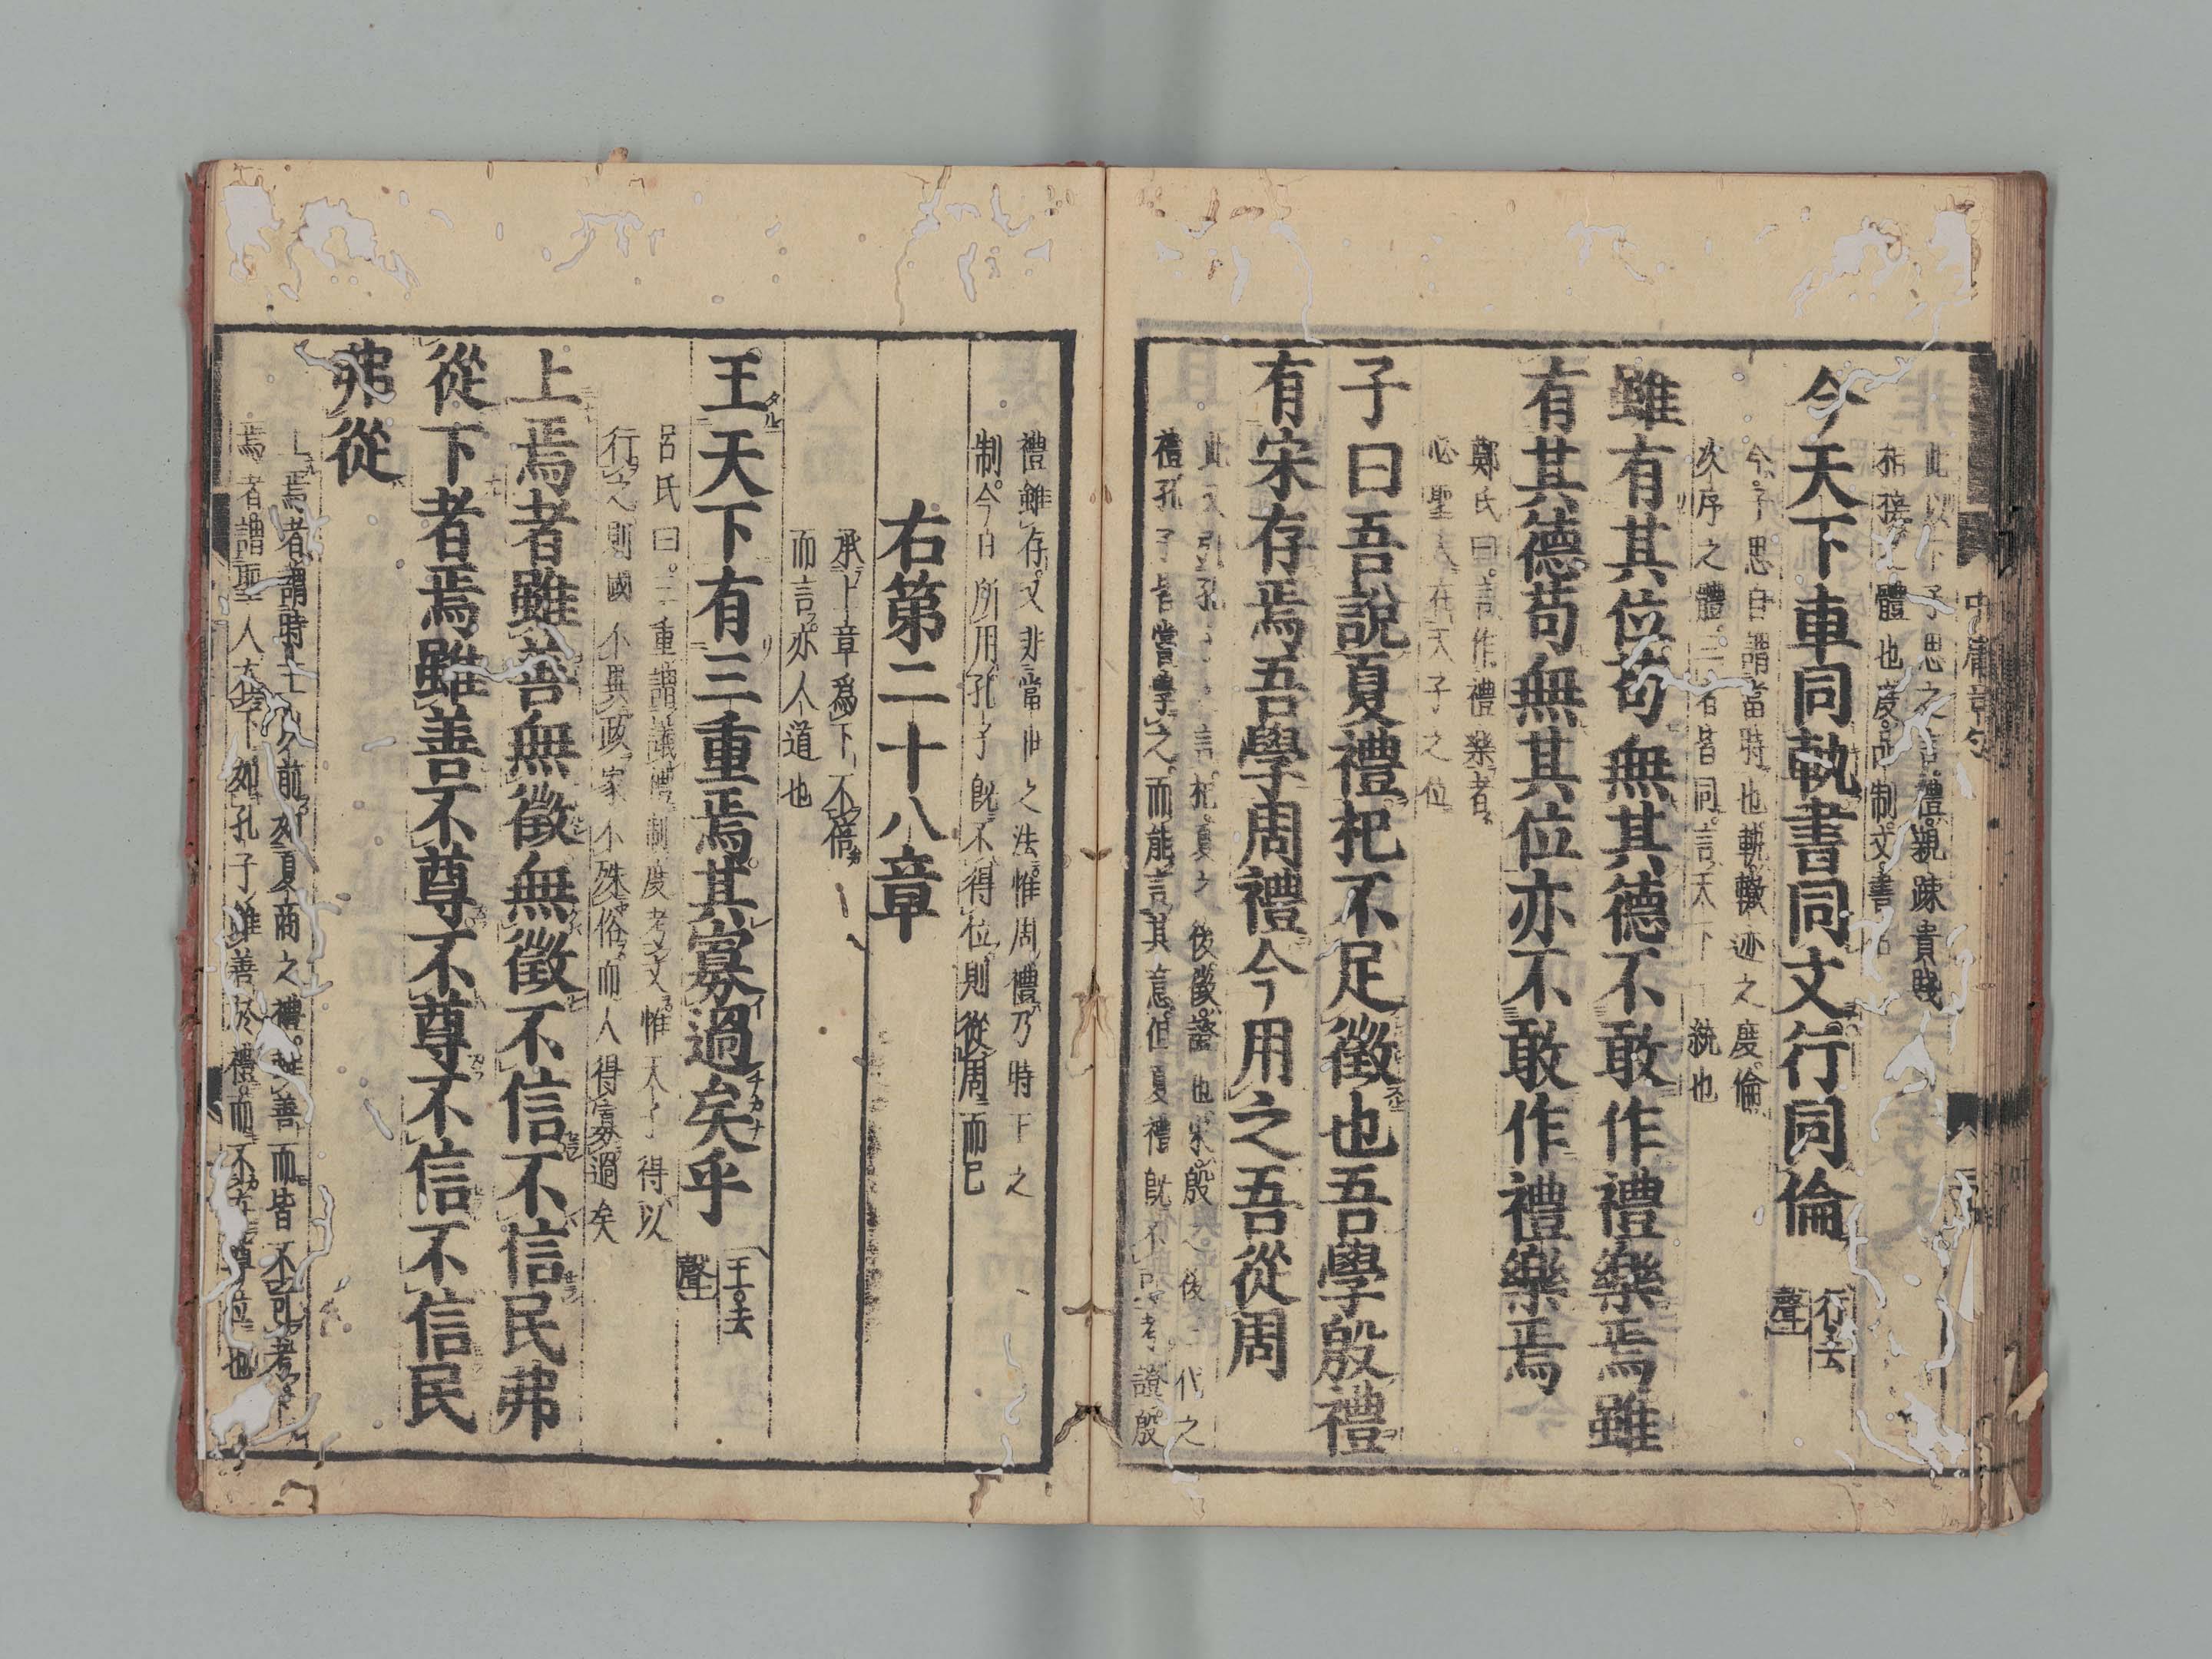 中庸章句
此以下子思之言禮親踈貴賤
相接之體也度品制文書名
今天下車同軌書同文行同倫
行去
聲
今子思自謂當時也軌轍迹之度倫
次序之體三者皆同言天下一統也
雖有其位苟無其德不敢作禮樂焉雖
有其德苟無其位亦不敢作禮樂焉
鄭氏曰言作禮樂者
必聖人在天子之位
子曰吾說夏禮杞不足徵也吾學殷禮
有宋存焉吾學周禮今用之吾從周
此又引孔子之言杞夏之後徵證也宋殷之後二代之
禮孔子皆嘗學之而能言其意但夏禮既不可考證殷
禮雖存又非當世之法惟周禮乃時王之
制今日所用孔子既不得位則從周而已
右第二十八章
承上章爲下不倍
而言亦人道也
王天下有三重焉其寡過矣乎
王去
聲
呂氏曰三重謂議禮制度考文惟天子得以
行之則國不異政家不殊俗而人得寡過矣
上焉者雖善無徵無徵不信不信民弗
從下者焉雖善不尊不尊不信不信民
弗從
上焉者謂時王以前如夏商之禮雖善而皆不可考
焉者謂聖人在下如孔子雖善於禮而不在尊位也